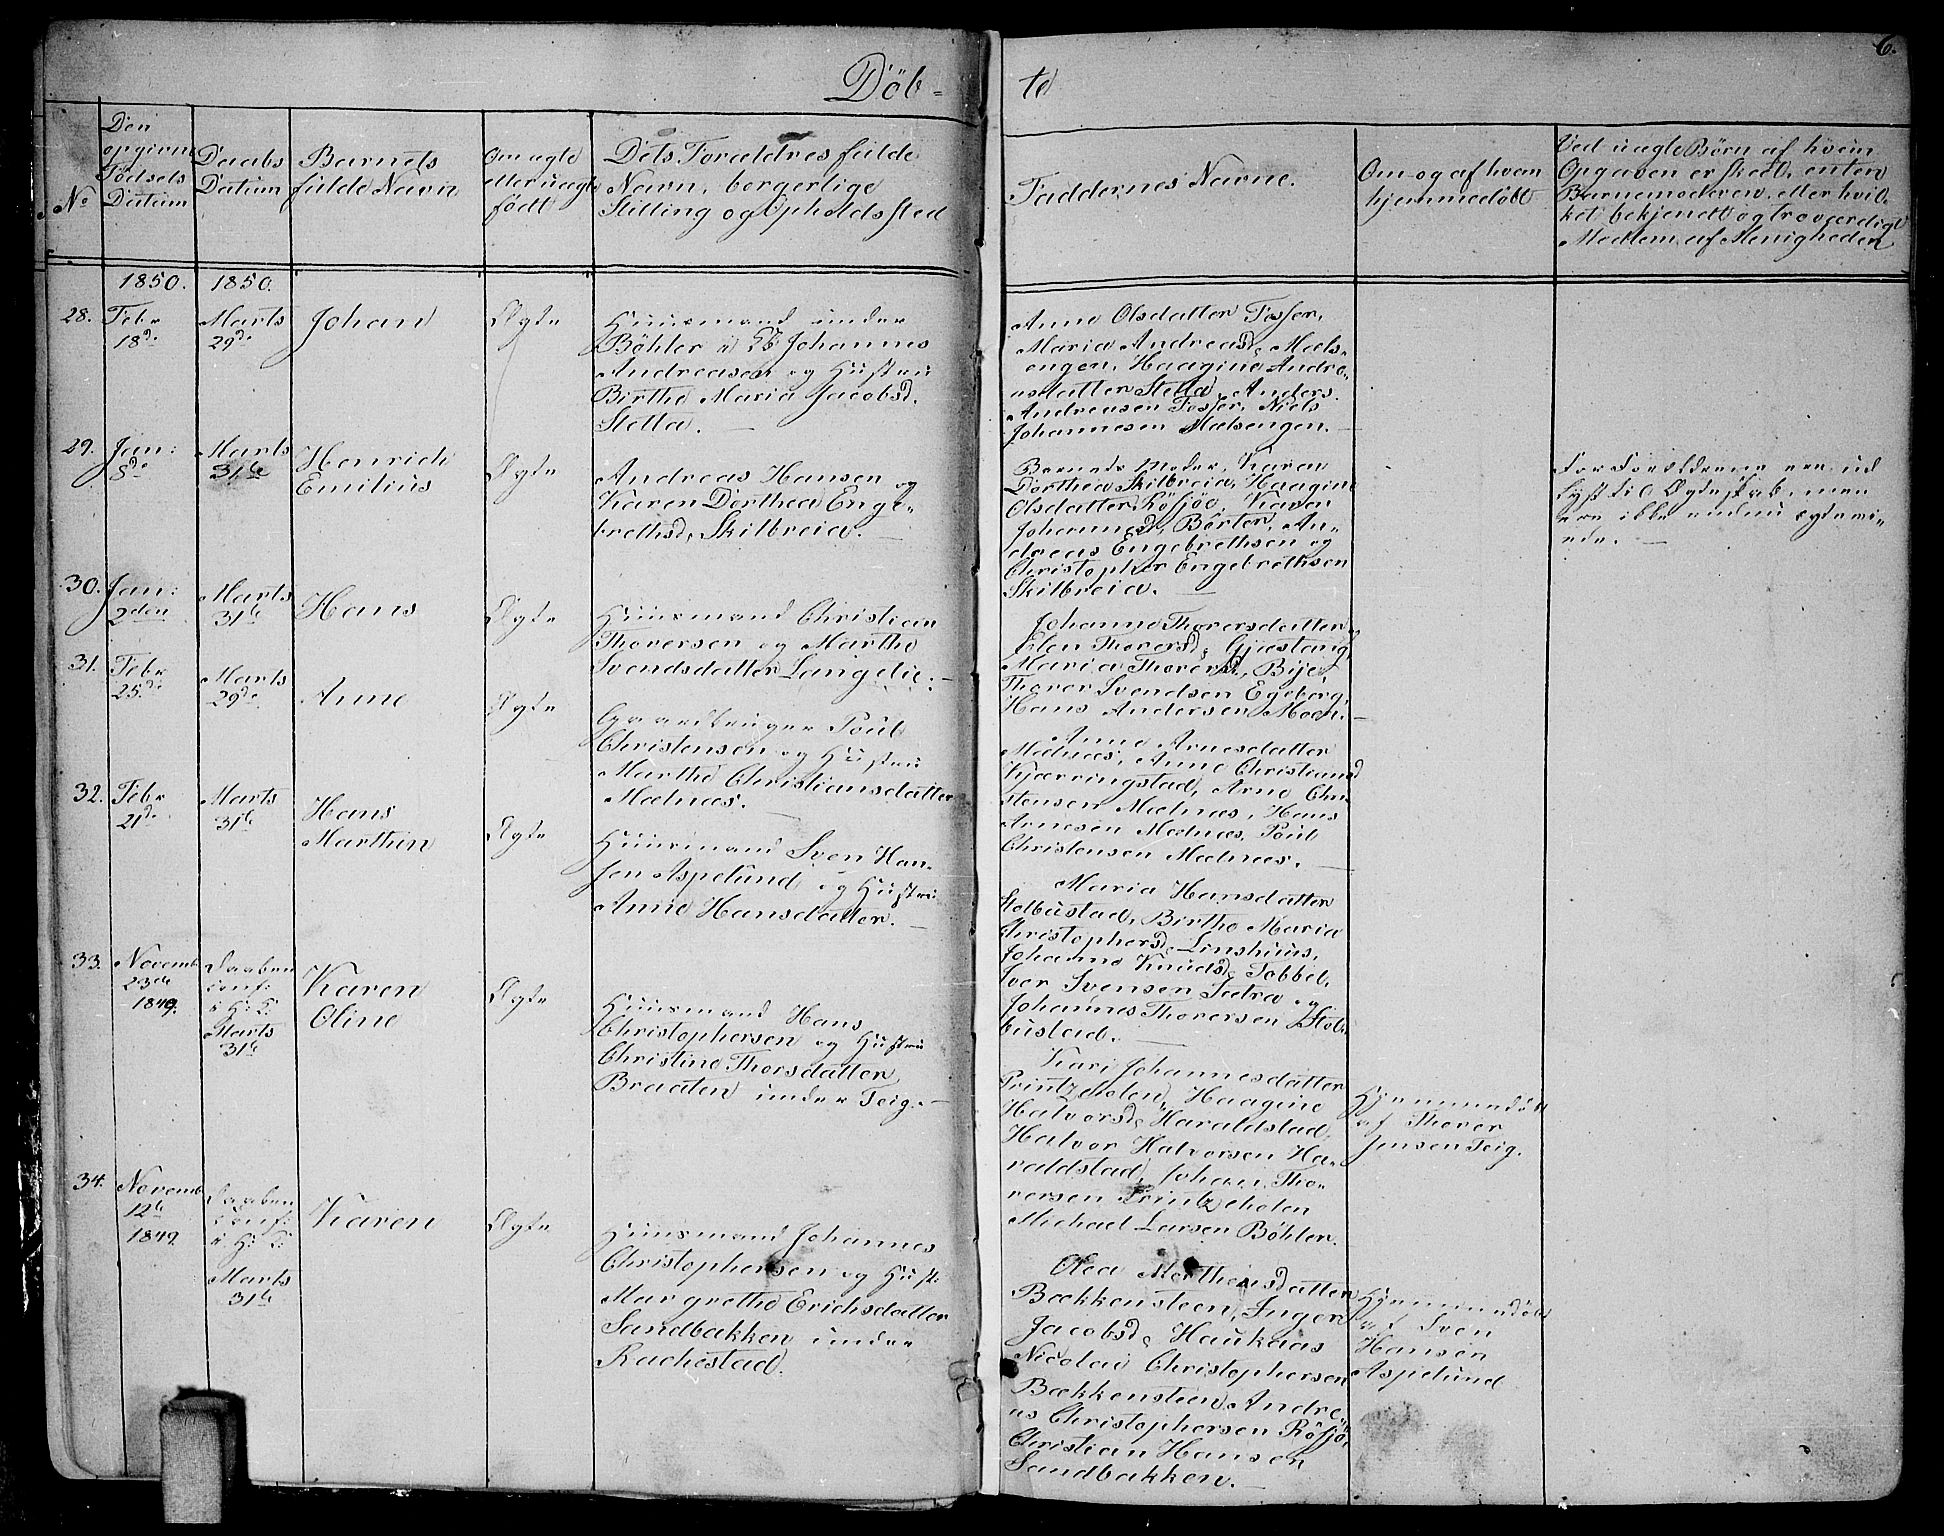 6.
Döb-
te
No
Den
opgivne
Födsels
Datum
Daabs
Datum
Barnets
fulde Navn
Om ægte
eller uægte
födt
Dets Forældres fulde
Navn, borgerlige
Stilling og Opholdssted
Faddernes Navne.
Om og af hvem
hjemmedöbt
Ved uægte Börn af hvem
Opgaven er skedt, enten
Barnemoderen, eller hvil-
ket bekjendt og troværdigt
Medlem af Menigheden
1850.
1850.
28.
Febr
18de
Marts
29de
Johan
Ægte
Huusmand under
Böhler i Johannes
Andreasen og Hustru
Birthe Maria Jacobsd.
Stetta.
Anne Olsdatter Fosser,
Maria Andreasd. Mæls-
engen, Haagine Andre-
asdatter Stetta, Anders
Andreasen Fosser, Niels
Johannesen Mælsengen.
29.
Jan:
8de
Marts
31te
Henrich
Emilius
Ægte
Andreas Hansen og
Karen Dorthea Enge-
brethsd. Skilbreia.
Barnets Moder, Karen
Dorthea Skilbreia, Haagine
Olsdatter Rösjöe, Karen
Johannesd. Börter, An-
dreas Engebrethsen og
Christopher Engebrethsen
Skilbreia.
Forældrene ere ud
lyst til Ægteskab, men
ere ikke endnu egtevi-
ede.
30.
Jan:
2den
Marts
31te
Hans
Ægte
Huusmand Christian
Thoversen og Marthe
Svendsdatter Langelie.
Johanne Thorersdatter,
Elen Thorersd. Gjæstang,
Maria Thorersd. Bije,
Thorer Svendsen Egeberg,
Hans Andersen Moen.
31.
Febr
25de
Marts
29de
Anne
Ægte
Gaardbruger Poul
Christensen og Hustru
Marthe Christiansdatter
Mælnæs.
Anne Arnesdatter
Mælnæs, Anne Christiansd
Kjærringstad, Arne Chri-
stensen Mælnæs, Hans
Arnesen Mælnæs, Poul
Christensen Mælnæs.
32.
Febr
21de
Marts
31te
Hans
Marthin
Ægte
Huusmand Sven Han-
sen Aspelund og Hustru
Anne Hansdatter.
Maria Hansdatter
Stolbustad, Birthe Maria
Christophersd. Linshuus,
Johanne Knudsd. Tobbel,
Iver Svensen Sætra og
Johannes Thorersen Stol-
bustad.
33.
Novemb
23de
1849.
Daaben
conf:
i H: K:
Marts
31te
Karen
Oline
Ægte
Huusmand Hans
Christophersen og Hustru
Christine Thorsdatter
Braaten under Teig.
Kari Johannesdatter
Printzeholen, Haagine
Halvorsd. Haraldstad,
Halvor Halvorsen Ha-
raldstad, Johan Tho-
rersen Printzeholen
Michael Larsen Böhler.
Hjemmedöbt
af Thorer
Jensen Teig.
34.
Novemb
12te
1849.
Daaben
conf:
i H: K:
Marts
31te
Karen
Ægte
Huusmand Johannes
Christophersen og Hust:
Margrethe Erichsdatter
Sandbakken under
Rachestad.
Olea Morthensdatter
Bækkensteen, Inger
Jacobsd. Haukaas
Nicolai Christophersen
Bækkensteen, Andre-
as Christophersen Rösjö,
Christian Hansen
Sandbakken.
Hjemmedöbt
af Sven
Hansen
Aspelund